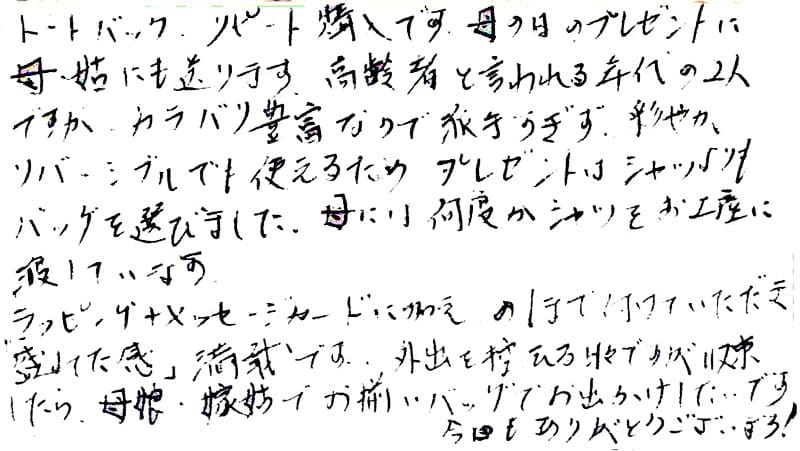 トートバック、リピート購入です。母の日のプレゼントに
母・姑にも送ります。高齢者と言われる年代の2人
ですが、カラバリ豊富なので派手すぎず、彩やか、
リバーシブルでも使えるため プレゼントはシャツよりも
バッグを選びました。母には何度かシャツをお土産に
渡しています。
ラッピング+メッセージカードに加え のしまで付けていただき
感」満載です。外出を控える中ですが収束
したら、母娘・嫁姑でお揃いバッグでお出かけしたいです
今回もありがとうございます!